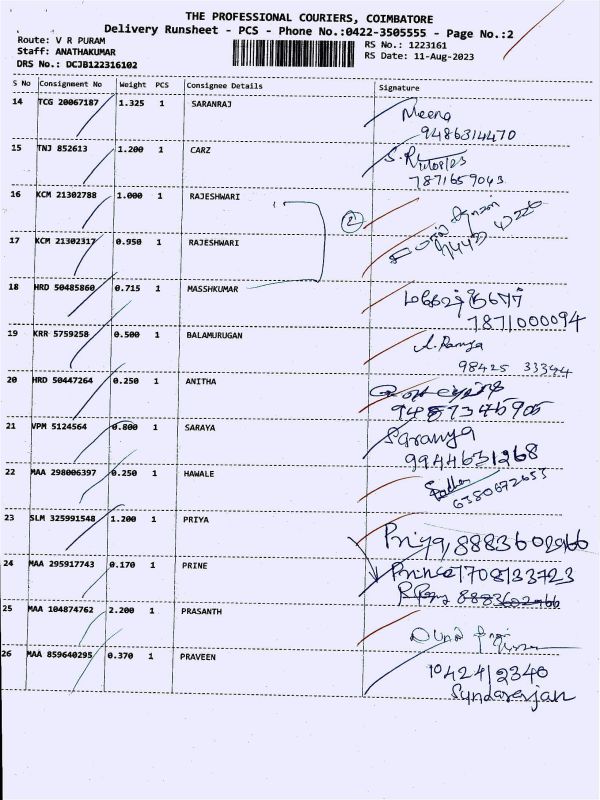 THE PROFESSIONAL COURIERS, COIMBATORE
Delivery Runsheet - PCS - Phone No.:0422-3505555 - Page No.:2
Route: V R PURAM
Staff: ANATHAKUMAR
DRS No.: DCJB122316102
RS No.: 1223161
RS Date: 11-Aug-2023
S No Consignment No Weight PCS Consignee Details Signature
14 TCG 20067187 1.325 1 SARANRAJ Meena
9486314470
15 TNJ 852613 1.200 1 CARZ
7871659043
16 KCM 21302788 1.000 1 RAJESHWARI
2
17 KCM 21302317 0.950 1 RAJESHWARI
18 HRD 50485860 0.715 1 MASSHKUMAR
7871000094
19 KRR 5759258 0.500 1 BALAMURUGAN A. Ramya
98425 33344
20 HRD 50447264 0.250 1 ANITHA
9487345905
21 VPM 5124564 0.800 1 SARAYA Saranya
9944631268
22 MAA 298006397 0.250 1 HAWALE
6380672653
23 SLM 325991548 1.200 1 PRIYA Priya, 8883602966
24 MAA 295917743 0.170 1 PRINE Prince 1708133723
25 MAA 104874762 2.200 1 PRASANTH
26 MAA 859640295 0.370 1 PRAVEEN 1042412340
Sundararjan